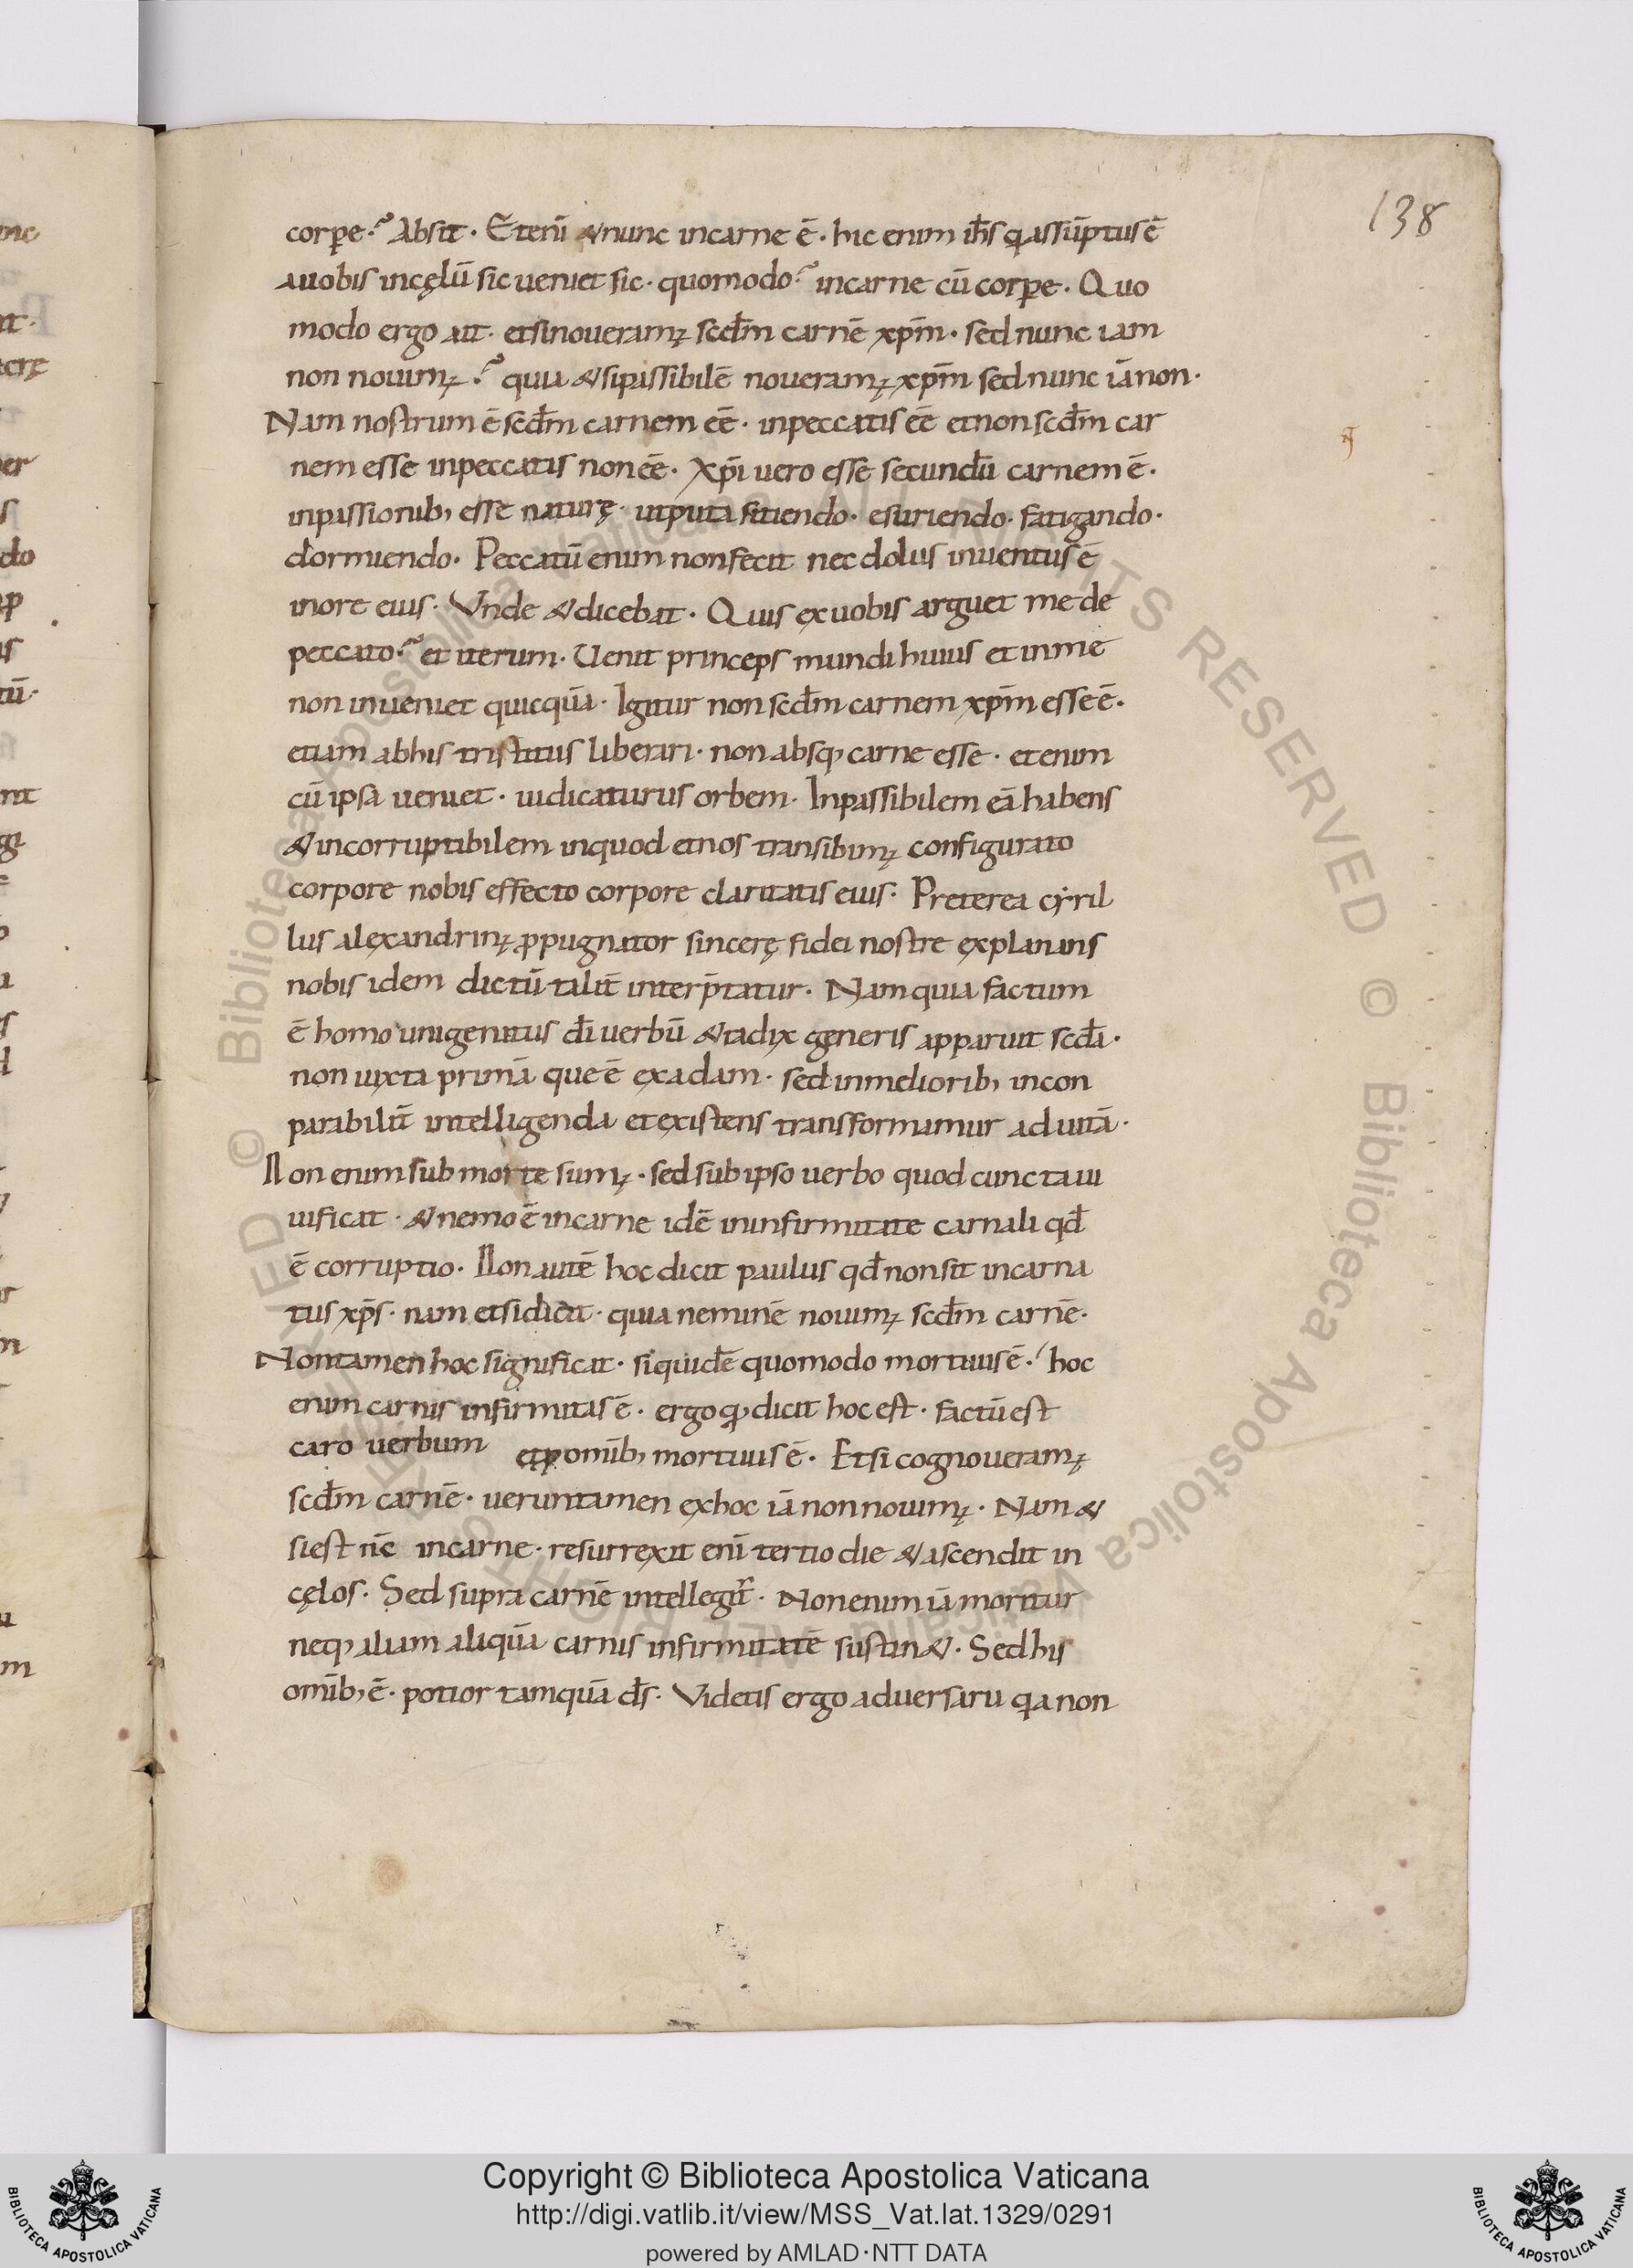 138
corꝑe.? Absit. Eteni̅ &nunc incarne e̅. hic enim ih̅s q̇assu̅ptus e̅
auobis incęlu̅ sic ueniet sic. quomodo? incarne cu̅ corꝑe. Quo
modo ergo ait. etsinoueram; scd̅m carne̅ xp̅m. sed nunc iam
non nouim;.? quia &sipassibile̅ noueram; xp̅m sed nunc ia̅ non.
Nam nostrum e̅ scd̅m carnem ee̅. inpeccatis ee̅ etnonscd̅m car
nem esse inpeccatis non ee̅. Xp̅i uero esse secundu̅ carnem e̅.
inpassionib; esse naturę. utputa sitiendo. esuriendo. fatigando.
dormiendo. Peccatu̅ enim nonfecit nec dolus inuentus e̅
inore eius. Vnde &dicebat. Quis exuobis arguet me de
peccato.? et iterum. Uenit princeps mundi huius et inme
non inueniet quicqua̅. Igitur non scd̅m carnem xp̅m esse e̅.
etiam abhis tristitus liberari. non absq; carne esse. etenim
cu̅ ipsa ueniet. iudicaturus orbem. Inpassibilem ea̅ habens
&incorruptibilem inquod etnos transibim; configurato
corpore nobis effecto corpore claritatis eius. Preterea cyril
lus alexandrin; ꝓpugnator sincerę fidei nostre explanans
nobis idem dictu̅ talit̅ interp̅tatur. Nam quia factum
e̅ homo unigenitus di̅ uerbu̅ &radix generis apparuit scd̅i.
non iuxta prima̅ que e̅ exadam. sed inmeliorib; incon
parabilit̅ intelligenda etexistens transformamur aduita̅.
Non enim sub morte sum;. sed sub ipso uerbo quod cuncta ui
uificat. &nemo e̅ incarne ide̅ ininfirmitate carnali qd̅
e̅ corruptio. Non aute̅ hoc dicit paulus qd̅ nonsit incarna
tus xp̅s. nam etsi dicit. quia nemine̅ nouim; scd̅m carne̅.
Nontamen hoc significat. siquide̅ quomodo mortuus e̅. hoc
enim carnis infirmitas e̅. ergo q; dicit hoc est. factu̅ est
caro uerbum etꝓ omib; mortuus e̅. Etsi cognoueram;
scd̅m carne̅. ueruntamen exhoc ia̅ non nouim;. Nam &
siest nc̅ incarne. resurrexit eni̅ tertio die &ascendit in
cęlos. Sed supra carne̅ intellegit̅. Non enim ia̅ moritur
neq; aliam aliqua̅ carnis infirmitate̅ sustin&. Sed his
omib; e̅. potior tamqua̅ ds̅. Videtis ergo aduersarii qa non
Copyright © Biblioteca Apostolica Vaticana
http://digi.vatlib.it/view/MSS_Vat.lat.1329/0291
powered by AMLAD·NTT DATA